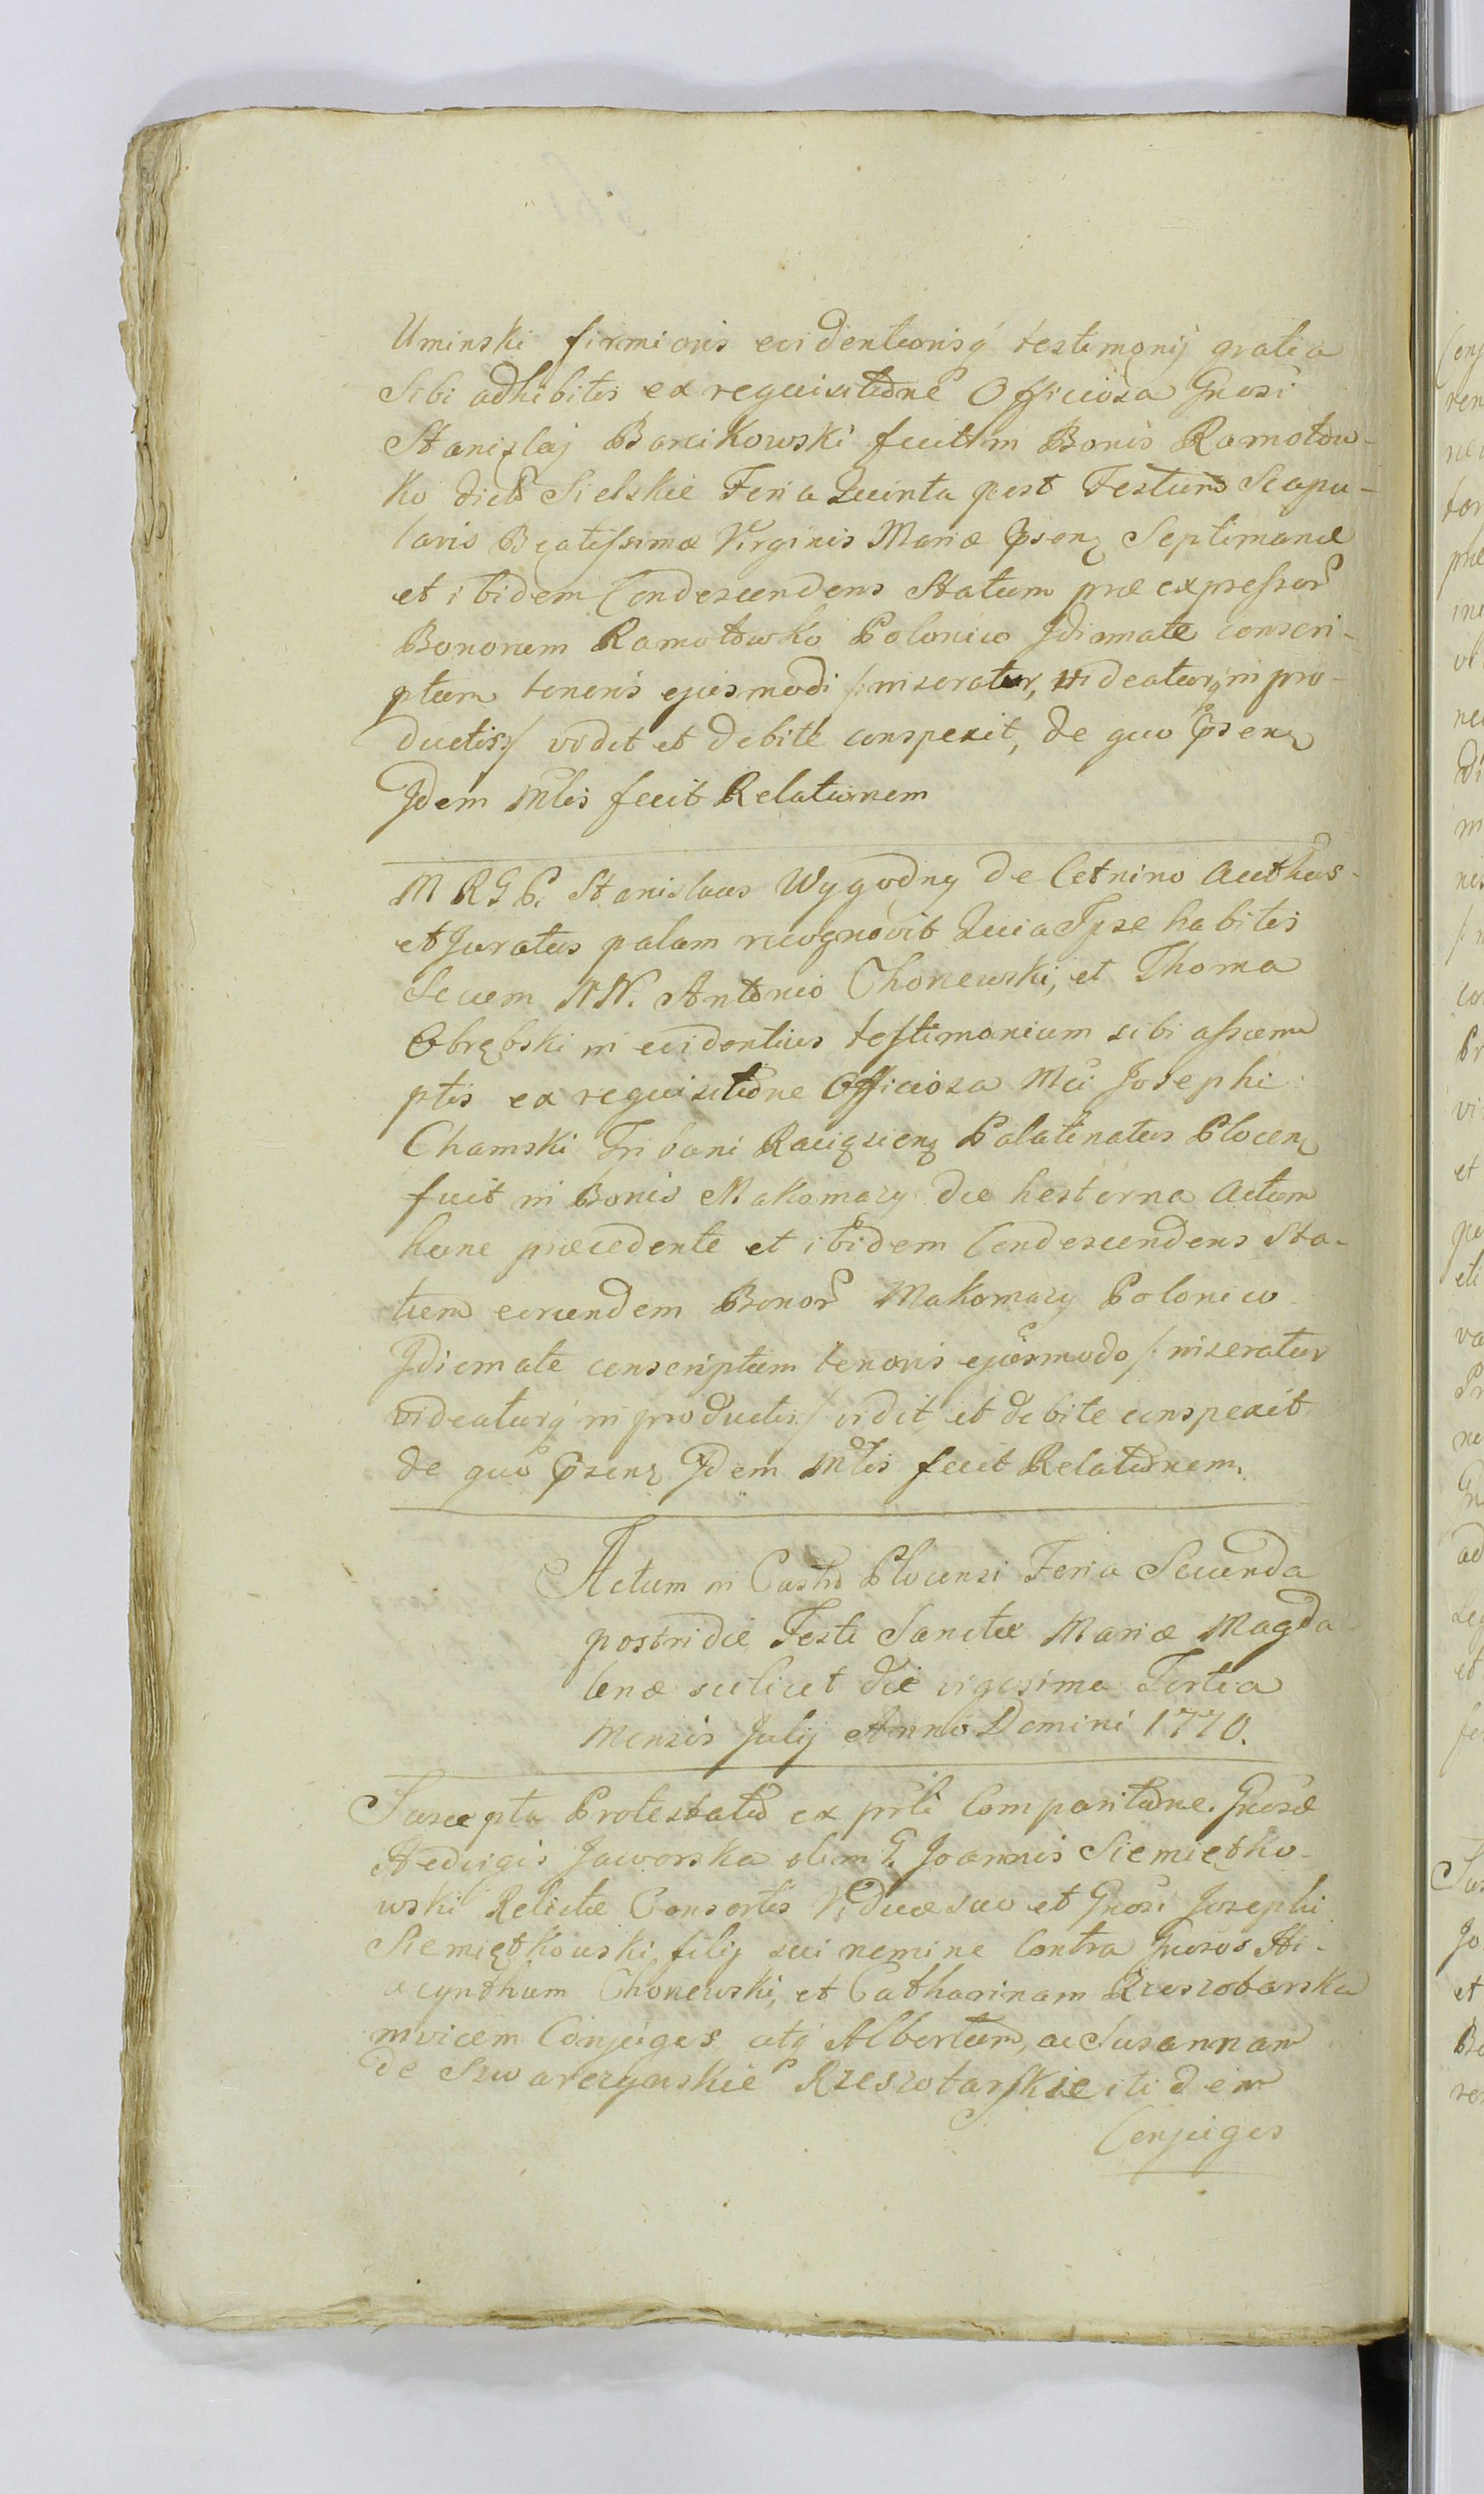 Uminski firmioris evidentiorisq́ testimonij gratia
Sibi adhibitis ex requisitione Officiosa Gnosi
Stanislaj Bonikowski fuit in Bonis Ramotow-
ko dictis Sielskie Feria Quinta post Festum Scapu-
laris Beatissimæ Virginis Mariæ Psenꝫ Septimanæ
et ibidem Condescendens Statum præexpressor̃
Bonorum Ramotowko Polonico Jdiomate conscri-
ptum tenoris ejusmodi /: inseratur, videaturq́ in pro-
ductis :/ vidit et debite conspexit, de quo Psenꝫ
Jdem Mlis fecit Relationem
M R G P. Stanislaus Wygodny de Cetnino Authus
et Juratus palam recognovit Quia Ipse habitis
Secum NN. Antonio Chonewski, et Thoma
Obrębski in evidentius testimonium sibi assum
ptis ex requisitione Officiosa Mci Josephi
Chamski Tribuni Raciązienꝫ Palatinatus Plocenꝫ
fuit in Bonis Makomazy die hesterna Actum
hunc præcedente et ibidem Condescendens Sta-
tum eorundem Bonor̃ Makomazy Polonico
Jdiomate conscriptum tenoris ejusmodo /: inseratur
videaturq́ in productis :/ vidit et debite conspexit
de quo Psenꝫ Jdem Mlis fecit Relationem.
Actum in Castro Plocensi Feria Secunda
postridie Festi Sanctæ Mariæ Magda
lenæ scilicet die vigesima Tertia
Mensis Julij Anno Domini 1770.
Suscepta Protestatio ex prli Comparitione. Gnosæ
Hedvigis Jaworska olim G. Joannis Siemiętko-
wski Relictæ Consortis Viduæ suo et Gnosi Josephi
Siemiętkowski, filij sui nomine Contra Gnosos Hi-
acynthum Chonewski, et Catharinam Rzeszotarska
invicem Conjuges atq́ Albertum, ac Susannam
de Szwarczynskie Rzeszotarskie itidem
Conjuges